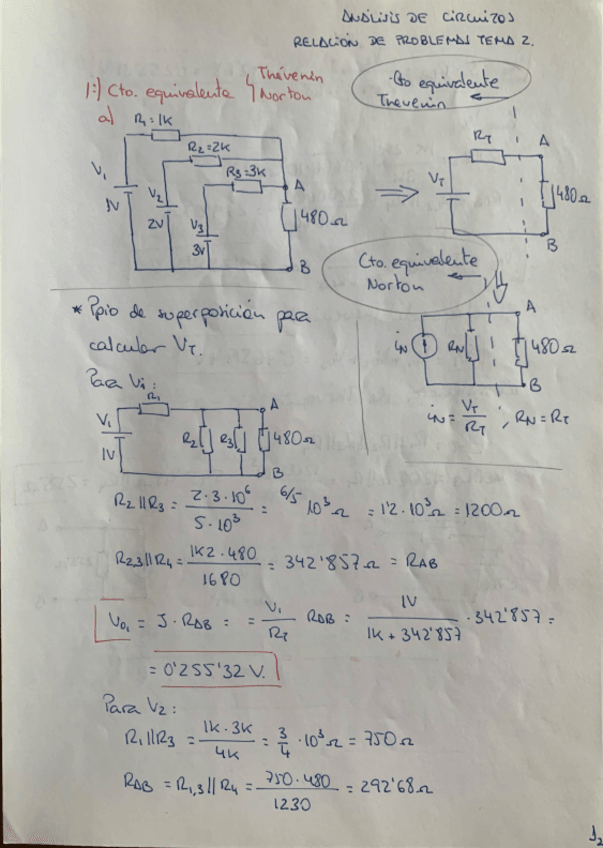 ANÁLISIS DE CIRCUITOS
RELACIÓN DE PROBLEMAS TEMA 2.
1:) Cto. equivalente Thévenin
Norton
a)
R1=1K
R2=2K
R3=3K
V1
1V
V2
2V
V3
3V
A
480Ω
B
· Cto equivalente
Thevenin
RT
A
VT
480Ω
B
Cto. equivalente
Norton
A
iN
RN
480Ω
B
iN = VT/RT , RN = RT
* Ppio de superposición para
calcular VT.
Para V1:
R1
A
V1
1V
R2
R3
480Ω
B
R2||R3 = 2·3·10⁶ / 5·10³ = 6/5 10³Ω = 1'2·10³Ω = 1200Ω
R2,3||R4 = 1K2·480 / 1680 = 342'857Ω = RAB
V01 = I·RAB = = V1/RT RAB = 1V / 1K+342'857 · 342'857 =
= 0'255'32 V.
Para V2:
R1||R3 = 1K·3K / 4K = 3/4 ·10³Ω = 750Ω
RAB = R1,3||R4 = 750·480 / 1230 = 292'68Ω